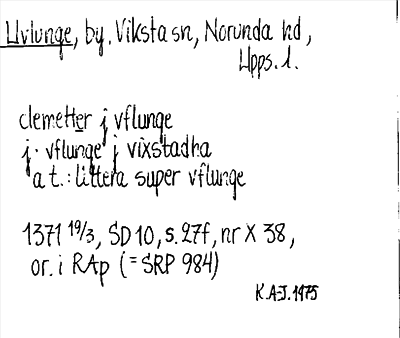 Uvlunge, by. Viksta sn, Norunda hd,
Upps. l.
clemetter j vflunge
j. vflunge j vixstadha
a t.: littera super vflunge
1371 19/3, SD 10, s. 27f, nr X 38,
or. i RAp (= SRP 984)
K.A-J. 1975